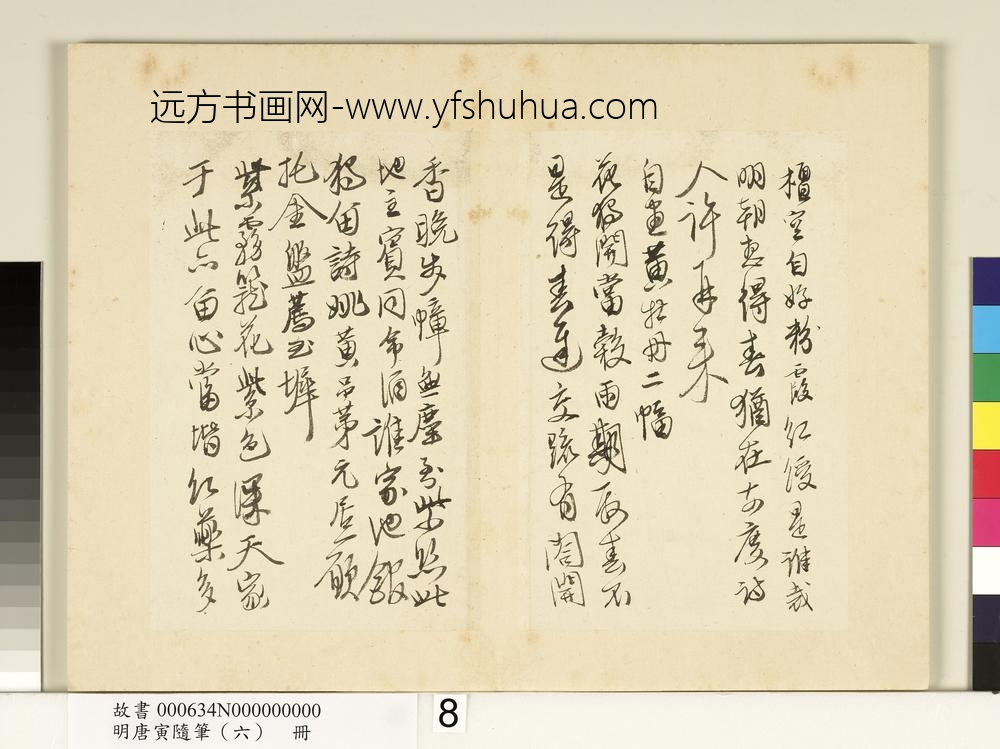 远方书画网-www.yfshuhua.com
檀空自好粉霞红後是誰裁
明朝得春猶在度詩
人許再来
自畫黄牡丹二幅
花獨開當穀雨期春不
是得春遲交疏有闇開
香晚步幛無塵紫照此
地主賓同命酒誰家池館
獨留詩姚黄品第元居一願
托金盤薦玉墀
紫霧籠花紫色深天家
于此亦留心當堦红藥多
故書 000634N000000000
明唐寅隨筆（六） 冊
8